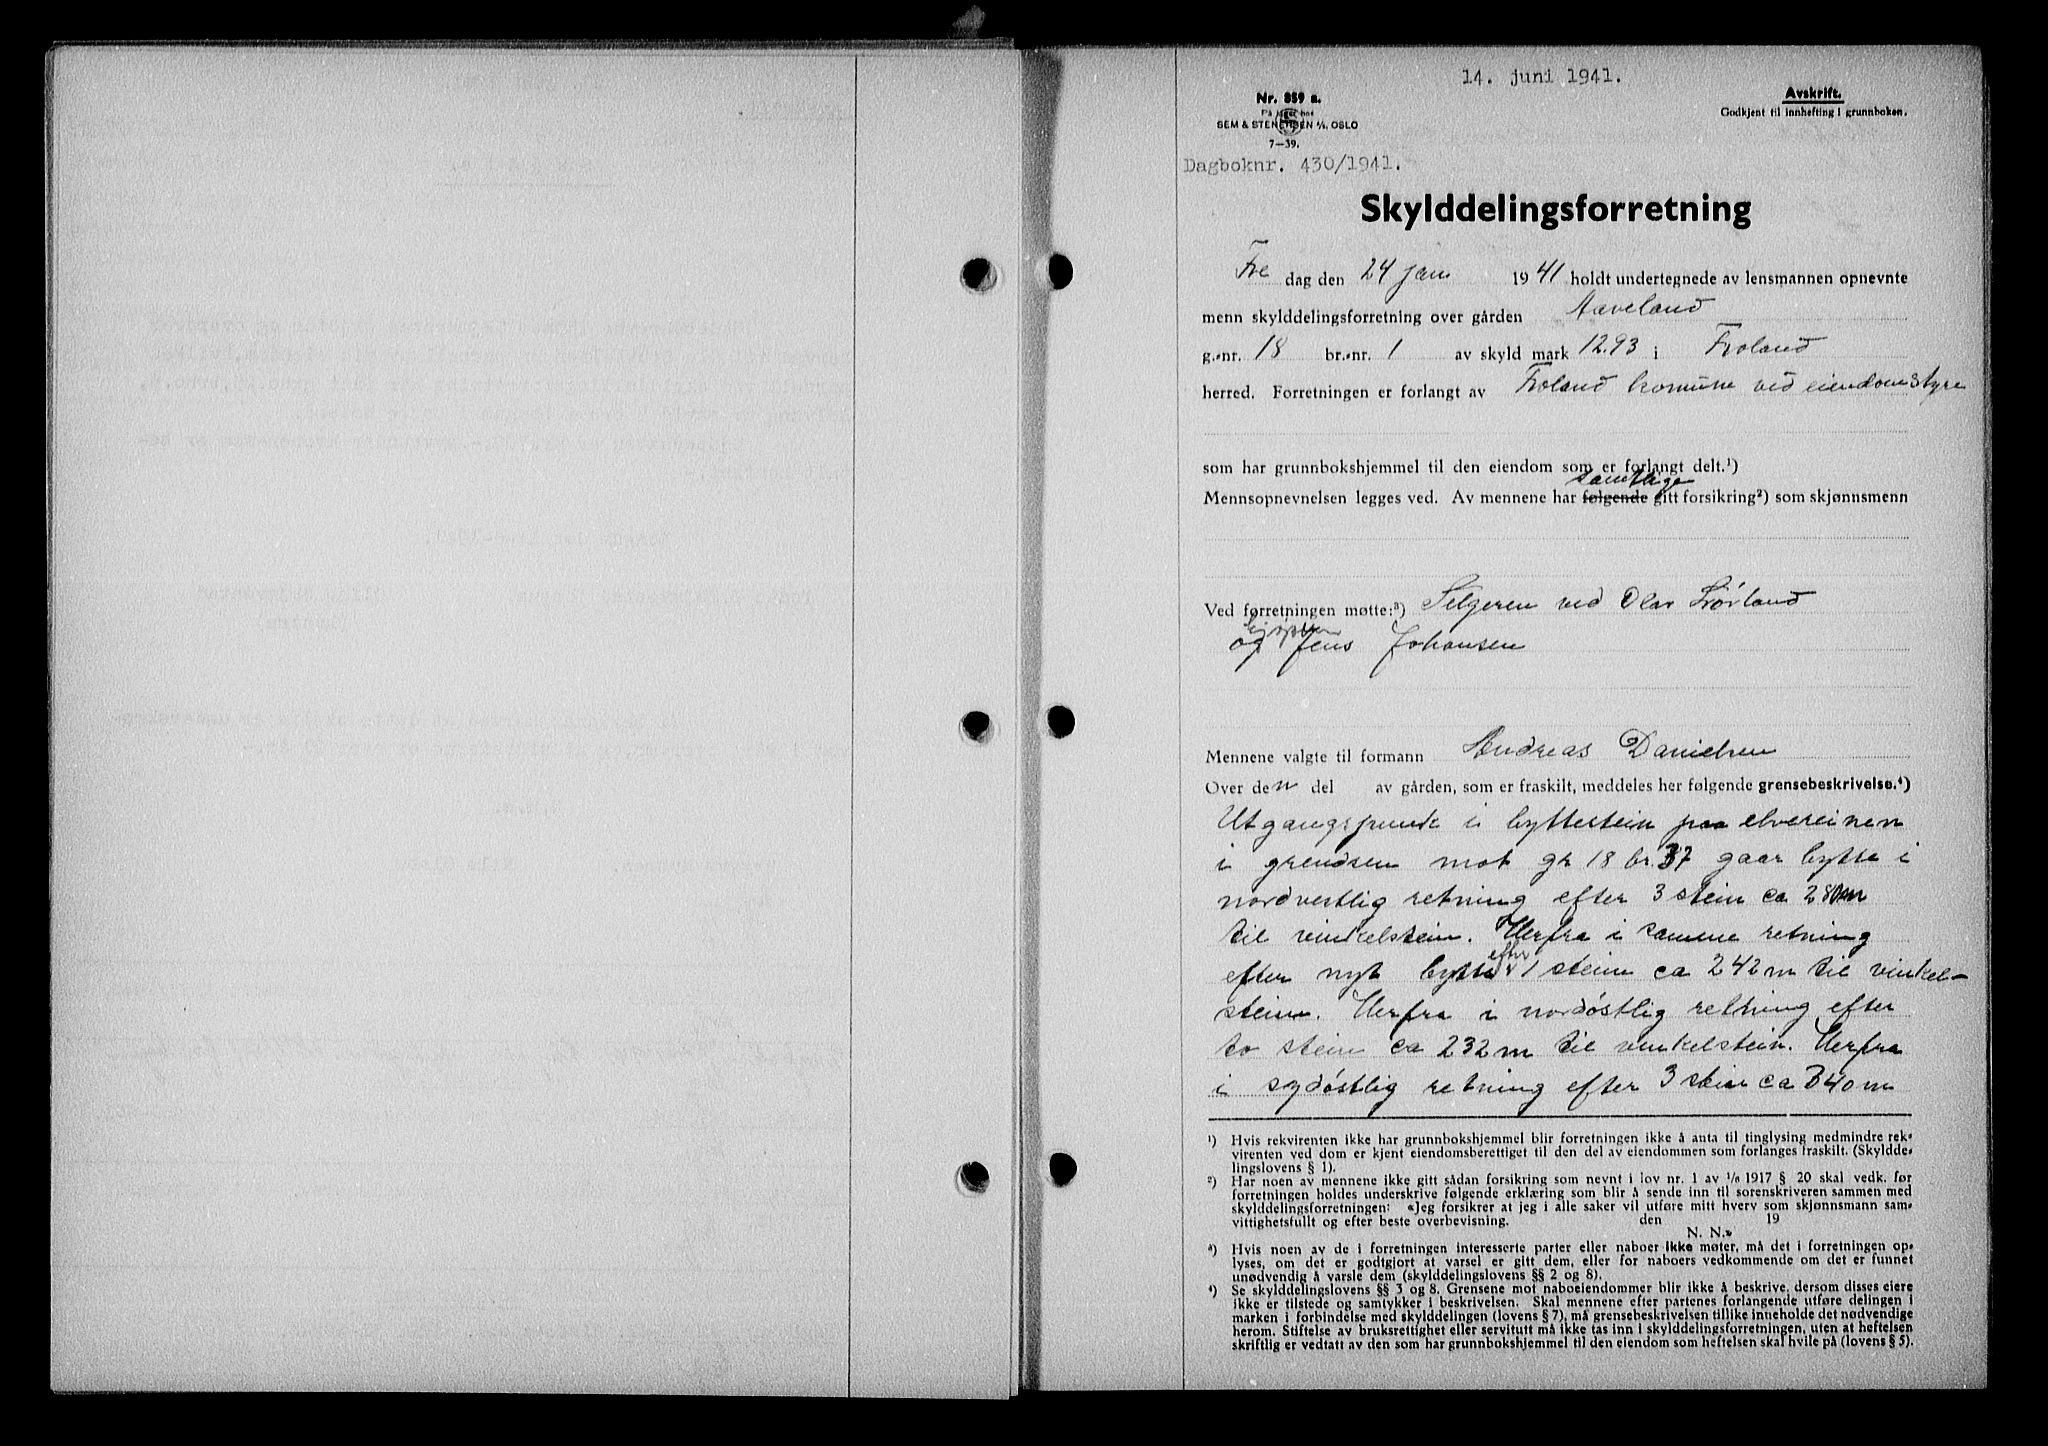 14. juni 1941.
Nr. 859 a.
På lager hos
SEM & STENERSEN A/S, OSLO
7—39.
Avskrift.
Godkjent til innhefting i grunnboken.
Dagboknr. 430/1941.
Skylddelingsforretning
Fre dag den 24 jan 1941 holdt undertegnede av lensmannen opnevnte
menn skylddelingsforretning over gården Aaveland
g.-nr. 18 br.-nr. 1 av skyld mark 12.93 i Froland
herred. Forretningen er forlangt av Froland komune ved eiendomsstyre
som har grunnbokshjemmel til den eiendom som er forlangt delt.¹)
samtlige
Mennsopnevnelsen legges ved. Av mennene har følgende gitt forsikring²) som skjønnsmenn
Ved forretningen møtte:³) Selgeren ved Olav Lørland
kjøperen
og Jens Johansen
Mennene valgte til formann Andreas Danielsen
Over den del av gården, som er fraskilt, meddeles her følgende grensebeskrivelse.⁴)
Utgangspunk i byttestein paa elvereinen
i grendsen mot gr 18 br. 37 gaar bytte i
nordvestlig retning efter 3 stein ca 280m
til vinkelstein. Herfra i samme retning
efter nyt bytte efter 1 stein ca 242m til vinkel-
stein. Herfra i nordøstlig retning efter
to stein ca 232m til vinkelstein. Herfra
i sydøstlig retning efter 3 stein ca 340m
¹) Hvis rekvirenten ikke har grunnbokshjemmel blir forretningen ikke å anta til tinglysing medmindre rek-
virenten ved dom er kjent eiendomsberettiget til den del av eiendommen som forlanges fraskilt. (Skyldde-
lingslovens § 1).
²) Har noen av mennene ikke gitt sådan forsikring som nevnt i lov nr. 1 av 1/6 1917 § 20 skal vedk. før
forretningen holdes underskrive følgende erklæring som blir å sende inn til sorenskriveren sammen med
skylddelingsforretningen: «Jeg forsikrer at jeg i alle saker vil utføre mitt hverv som skjønnsmann sam-
vittighetsfullt og efter beste overbevisning. den 19
N. N.»
³) Hvis noen av de i forretningen interesserte parter eller naboer ikke møter, må det i forretningen op-
lyses, om det er godtgjort at varsel er gitt dem, eller for naboers vedkommende om det er funnet
unødvendig å varsle dem (skylddelingslovens §§ 2 og 8).
⁴) Se skylddelingslovens §§ 3 og 8. Grensene mot naboeiendommer blir ikke å beskrive, dersom disses eiere
ikke er tilstede og samtykker i beskrivelsen. Skal mennene efter partenes forlangende utføre delingen i
marken i forbindelse med skylddelingen (lovens § 7), må grensebeskrivelsen tillike inneholde det nødvendige
herom. Stiftelse av bruksrettighet eller servitutt må ikke tas inn i skylddelingsforretningen, uten at heftelsen
skriftlig er vedtatt av den som har grunnbokshjemmel til den eiendom som heftelsen skal hvile på (lovens § 5).